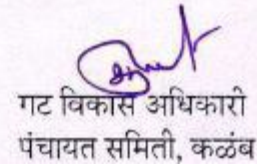 गट विकास अधिकारी
पंचायत समिती, कळंब